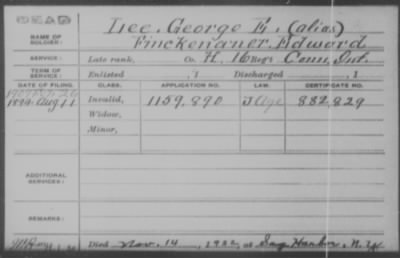 DEAD
NAME OF SOLDIER: Lee, George E. (alias)
Finckenauer, Edward
SERVICE: Late rank, Co. H, 10 Reg't Conn. Inf.
TERM OF SERVICE: Enlisted , 1 Discharged , 1
DATE OF FILING. CLASS. APPLICATION NO. LAW. CERTIFICATE NO.
1894 Aug 11 Invalid, 1159,890 J Age 882,829
Widow,
Minor,
ADDITIONAL SERVICES:
REMARKS:
Died Nov. 14, 1922, at Sag Harbor, N.Y.